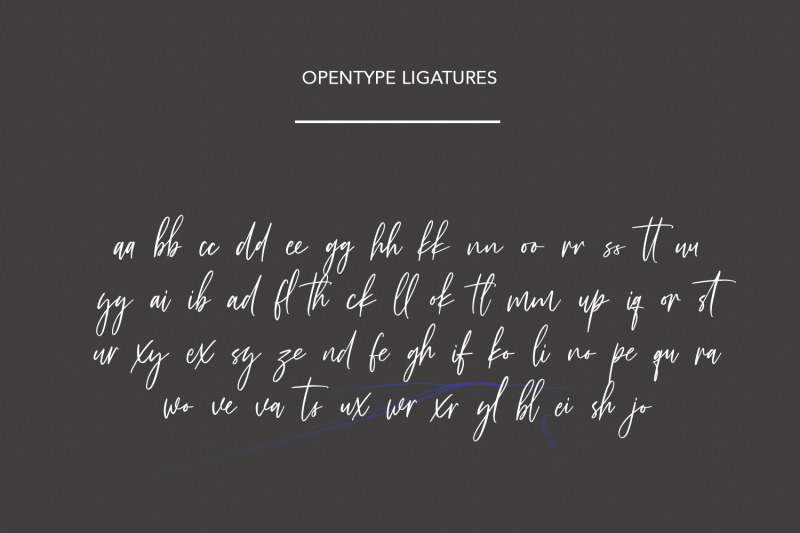 OPENTYPE LIGATURES
aa bb cc dd ee gg hh kk nn oo rr ss tt uu
yy ai ib ad fl th ck ll ok tl mm up iq or st
ur xy ex sy ze nd fe gh if ko li no pe qu ra
wo ve va ts ux wr xr yl bl ei sh jo